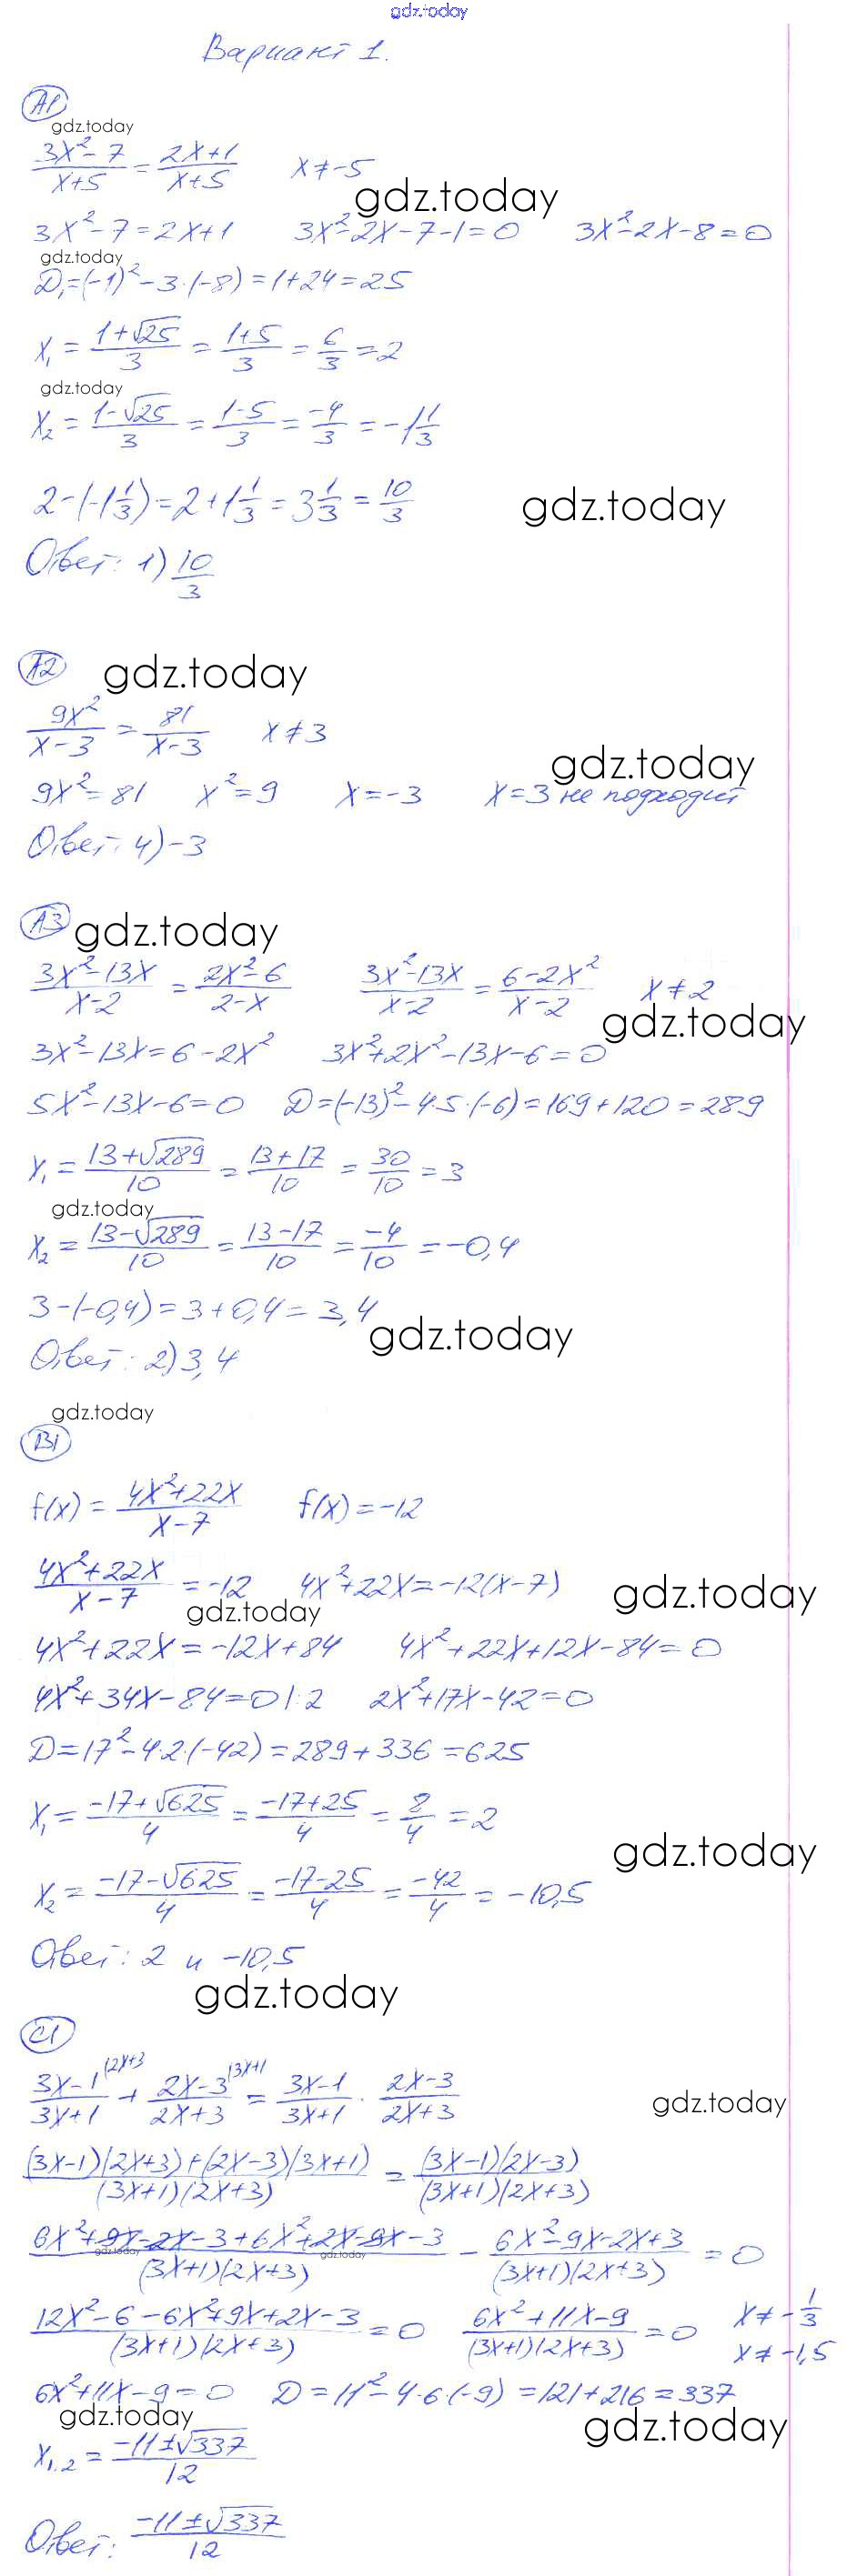 gdz.today
Вариант 1.
А1
gdz.today
(3x²-7)/(x+5) = (2x+1)/(x+5)   x≠-5
gdz.today
3x²-7=2x+1   3x²-2x-7-1=0   3x²-2x-8=0
gdz.today
D₁=(-1)²-3·(-8)=1+24=25
x₁ = (1+√25)/3 = (1+5)/3 = 6/3 = 2
gdz.today
x₂ = (1-√25)/3 = (1-5)/3 = -4/3 = -1 1/3
2-(-1 1/3)=2+1 1/3=3 1/3=10/3
gdz.today
Ответ: 1) 10/3
А2
gdz.today
9x²/(x-3) = 81/(x-3)   x≠3
gdz.today
9x²=81   x²=9   x=-3   x=3 не подходит
Ответ: 4) -3
А3
gdz.today
(3x²-13x)/(x-2) = (2x²-6)/(2-x)   (3x²-13x)/(x-2) = (6-2x²)/(x-2)   x≠2
gdz.today
3x²-13x=6-2x²   3x²+2x²-13x-6=0
5x²-13x-6=0   D=(-13)²-4·5·(-6)=169+120=289
x₁ = (13+√289)/10 = (13+17)/10 = 30/10 = 3
gdz.today
x₂ = (13-√289)/10 = (13-17)/10 = -4/10 = -0,4
3-(-0,4)=3+0,4=3,4
gdz.today
Ответ: 2) 3,4
gdz.today
В1
f(x) = (4x²+22x)/(x-7)   f(x)=-12
(4x²+22x)/(x-7) = -12   4x²+22x=-12(x-7)
gdz.today
gdz.today
4x²+22x=-12x+84   4x²+22x+12x-84=0
4x²+34x-84=0 |:2   2x²+17x-42=0
D=17²-4·2·(-42)=289+336=625
x₁ = (-17+√625)/4 = (-17+25)/4 = 8/4 = 2
gdz.today
x₂ = (-17-√625)/4 = (-17-25)/4 = -42/4 = -10,5
Ответ: 2 и -10,5
gdz.today
С1
(3x-1)/(3x+1) |2x+3 + (2x-3)/(2x+3) |3x+1 = (3x-1)/(3x+1) · (2x-3)/(2x+3)
gdz.today
((3x-1)(2x+3)+(2x-3)(3x+1))/((3x+1)(2x+3)) = ((3x-1)(2x-3))/((3x+1)(2x+3))
(6x²+9x-2x-3+6x²+2x-9x-3)/((3x+1)(2x+3)) - (6x²-9x-2x+3)/((3x+1)(2x+3)) = 0
gdz.today
gdz.today
(12x²-6-6x²+9x+2x-3)/((3x+1)(2x+3)) = 0   (6x²+11x-9)/((3x+1)(2x+3)) = 0   x≠-1/3
x≠-1,5
6x²+11x-9=0   D=11²-4·6·(-9)=121+216=337
gdz.today
gdz.today
x₁,₂ = (-11±√337)/12
Ответ: (-11±√337)/12